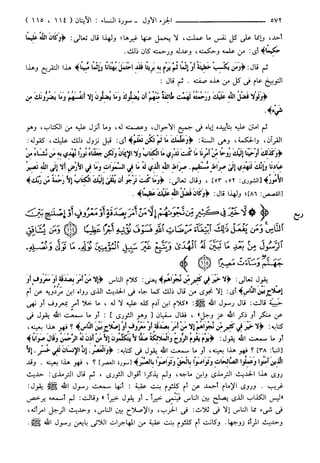 ٥٧٢ الجزء الأول - سورة النساء : الآيتان ( ١١٤ ، ١١٥ )
أحد، وإنما على كل نفس ما عملت، لا يحمل عنها غيرها؛ ولهذا قال تعالى: ﴿وَكَانَ اللَّهُ عَلِيمًا
حَكِيمًا﴾ أي: من علمه وحكمته، وعدله ورحمته كان ذلك.
ثم قال: ﴿وَمَن يَكْسِبْ خَطِيئَةً أَوْ إِثْمًا ثُمَّ يَرْمِ بِهِ بَرِيئًا فَقَدِ احْتَمَلَ بُهْتَانًا وَإِثْمًا مُّبِينًا﴾ هذا التقريع وهذا
التوبيخ عام في كل من هذه صفته . ثم قال :
﴿وَلَوْلَا فَضْلُ اللَّهِ عَلَيْكَ وَرَحْمَتُهُ لَهَمَّت طَّائِفَةٌ مِّنْهُمْ أَن يُضِلُّوكَ وَمَا يُضِلُّونَ إِلَّا أَنفُسَهُمْ وَمَا يَضُرُّونَكَ مِن
شَيْءٍ﴾.
ثم امتن عليه بتأييده إياه في جميع الأحوال، وعصمته له، وما أنزل عليه من الكتاب، وهو
القرآن، والحكمة، وهي السنة: ﴿وَعَلَّمَكَ مَا لَمْ تَكُن تَعْلَمُ﴾ أي: قبل نزول ذلك عليك، كقوله:
﴿وَكَذَٰلِكَ أَوْحَيْنَا إِلَيْكَ رُوحًا مِّنْ أَمْرِنَا مَا كُنتَ تَدْرِي مَا الْكِتَابُ وَلَا الْإِيمَانُ وَلَٰكِن جَعَلْنَاهُ نُورًا نَّهْدِي بِهِ مَن نَّشَاءُ مِنْ
عِبَادِنَا وَإِنَّكَ لَتَهْدِي إِلَىٰ صِرَاطٍ مُّسْتَقِيمٍ. صِرَاطِ اللَّهِ الَّذِي لَهُ مَا فِي السَّمَاوَاتِ وَمَا فِي الْأَرْضِ أَلَا إِلَى اللَّهِ تَصِيرُ
الْأُمُورُ﴾ [الشورى: ٥٢، ٥٣] ، وقال تعالى: ﴿وَمَا كُنتَ تَرْجُو أَن يُلْقَىٰ إِلَيْكَ الْكِتَابُ إِلَّا رَحْمَةً مِّن رَّبِّكَ﴾
[القصص: ٨٦]؛ ولهذا قال: ﴿وَكَانَ فَضْلُ اللَّهِ عَلَيْكَ عَظِيمًا﴾.
ربع
﴿ لَّا خَيْرَ فِي كَثِيرٍ مِّن نَّجْوَاهُمْ إِلَّا مَنْ أَمَرَ بِصَدَقَةٍ أَوْ مَعْرُوفٍ أَوْ
إِصْلَاحٍ بَيْنَ النَّاسِ وَمَن يَفْعَلْ ذَٰلِكَ ابْتِغَاءَ مَرْضَاتِ اللَّهِ فَسَوْفَ نُؤْتِيهِ أَجْرًا عَظِيمًا وَمَن يُشَاقِقِ
الرَّسُولَ مِن بَعْدِ مَا تَبَيَّنَ لَهُ الْهُدَىٰ وَيَتَّبِعْ غَيْرَ سَبِيلِ الْمُؤْمِنِينَ نُوَلِّهِ مَا تَوَلَّىٰ وَنُصْلِهِ
جَهَنَّمَ وَسَاءَتْ مَصِيرًا
يقول تعالى: ﴿لَّا خَيْرَ فِي كَثِيرٍ مِّن نَّجْوَاهُمْ﴾ يعني: كلام الناس ﴿إِلَّا مَنْ أَمَرَ بِصَدَقَةٍ أَوْ مَعْرُوفٍ أَوْ
إِصْلَاحٍ بَيْنَ النَّاسِ﴾ أي: إلا نجوى من قال ذلك كما جاء في الحديث الذي رواه ابن مردويه عن أم
حبيبة قالت: قال رسول الله ﷺ: «كلام ابن آدم كله عليه لا له ، ما خلا أمر بمعروف أو نهى
عن منكر أو ذكر الله عز وجل» ، فقال سفيان [ وهو الثوري ] : أو ما سمعت الله يقول في
كتابه: ﴿لَّا خَيْرَ فِي كَثِيرٍ مِّن نَّجْوَاهُمْ إِلَّا مَنْ أَمَرَ بِصَدَقَةٍ أَوْ مَعْرُوفٍ أَوْ إِصْلَاحٍ بَيْنَ النَّاسِ﴾ ؟ فهو هذا بعينه،
أو ما سمعت الله يقول: ﴿يَوْمَ يَقُومُ الرُّوحُ وَالْمَلَائِكَةُ صَفًّا لَّا يَتَكَلَّمُونَ إِلَّا مَنْ أَذِنَ لَهُ الرَّحْمَٰنُ وَقَالَ صَوَابًا﴾
[النبأ: ٣٨] ؟ فهو هذا بعينه، أو ما سمعت الله يقول في كتابه: ﴿وَالْعَصْرِ. إِنَّ الْإِنسَانَ لَفِي خُسْرٍ. إِلَّا
الَّذِينَ آمَنُوا وَعَمِلُوا الصَّالِحَاتِ وَتَوَاصَوْا بِالْحَقِّ وَتَوَاصَوْا بِالصَّبْرِ﴾ [سورة العصر] ؟ ، فهو هذا بعينه . وقد
روى هذا الحديث الترمذي وابن ماجه، ولم يذكرا أقوال الثوري ، ثم قال الترمذي: حديث
غريب . وروى الإمام أحمد عن أم كلثوم بنت عقبة : أنها سمعت رسول الله ﷺ يقول:
«ليس الكذاب الذي يصلح بين الناس فينمي خيراً - أو يقول خيراً» وقالت: لم أسمعه يرخص
في شيء مما الناس إلا في ثلاث: في الحرب، والإصلاح بين الناس، وحديث الرجل امرأته،
وحديث المرأة زوجها. وكانت أم كلثوم بنت عقبة من المهاجرات اللاتي بايعن رسول الله ﷺ.